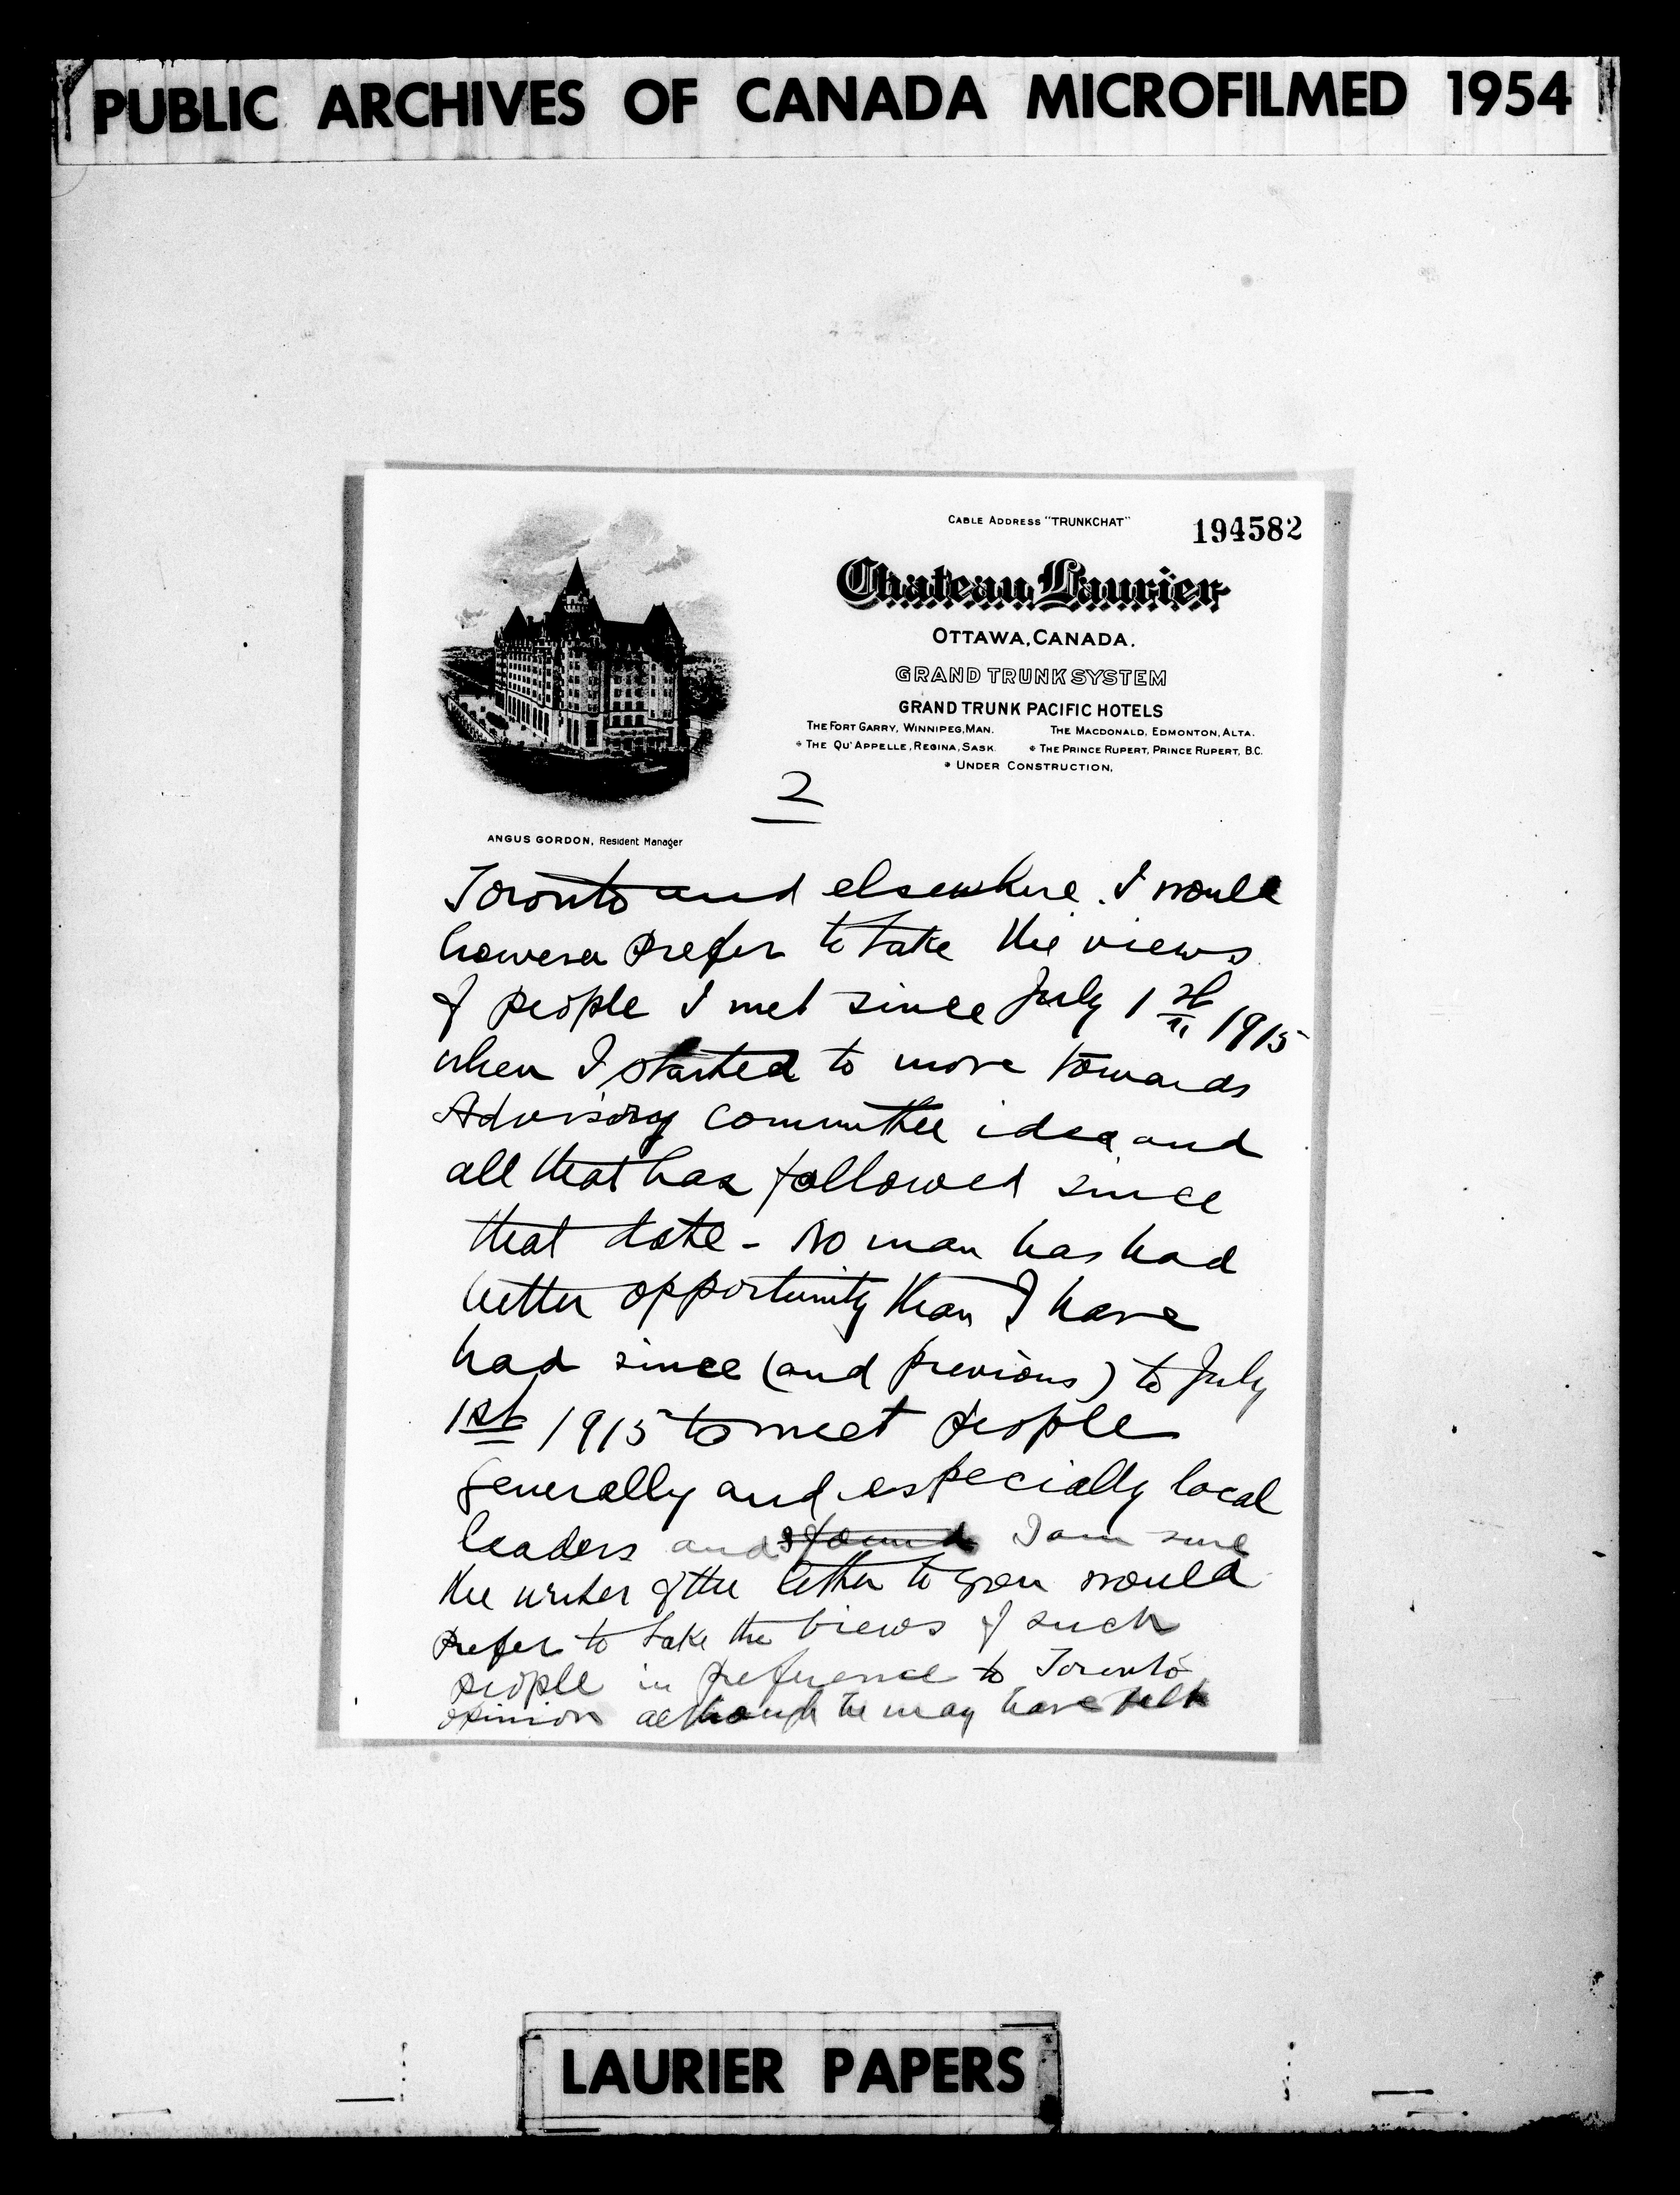 PUBLIC ARCHIVES OF CANADA MICROFILMED 1954
CABLE ADDRESS "TRUNKCHAT"
194582
Chateau Laurier
OTTAWA, CANADA.
GRAND TRUNK SYSTEM
GRAND TRUNK PACIFIC HOTELS
THE FORT GARRY, WINNIPEG, MAN. THE MACDONALD, EDMONTON, ALTA.
* THE QU'APPELLE, REGINA, SASK. * THE PRINCE RUPERT, PRINCE RUPERT, B.C.
* UNDER CONSTRUCTION.
2
ANGUS GORDON, Resident Manager
Toronto and elsewhere. I would
however prefer to take the views
of people I met since July 1st 1915
when I started to move towards
Advisory Committee idea and
all that has followed since
that date - No man has had
better opportunity than I have
had since (and previous) to July
1st 1915 to meet people
generally and especially local
leaders and I found I am sure
the writer of the letter to you would
prefer to take the views of such
people in preference to Toronto
opinion although he may have felt
LAURIER PAPERS